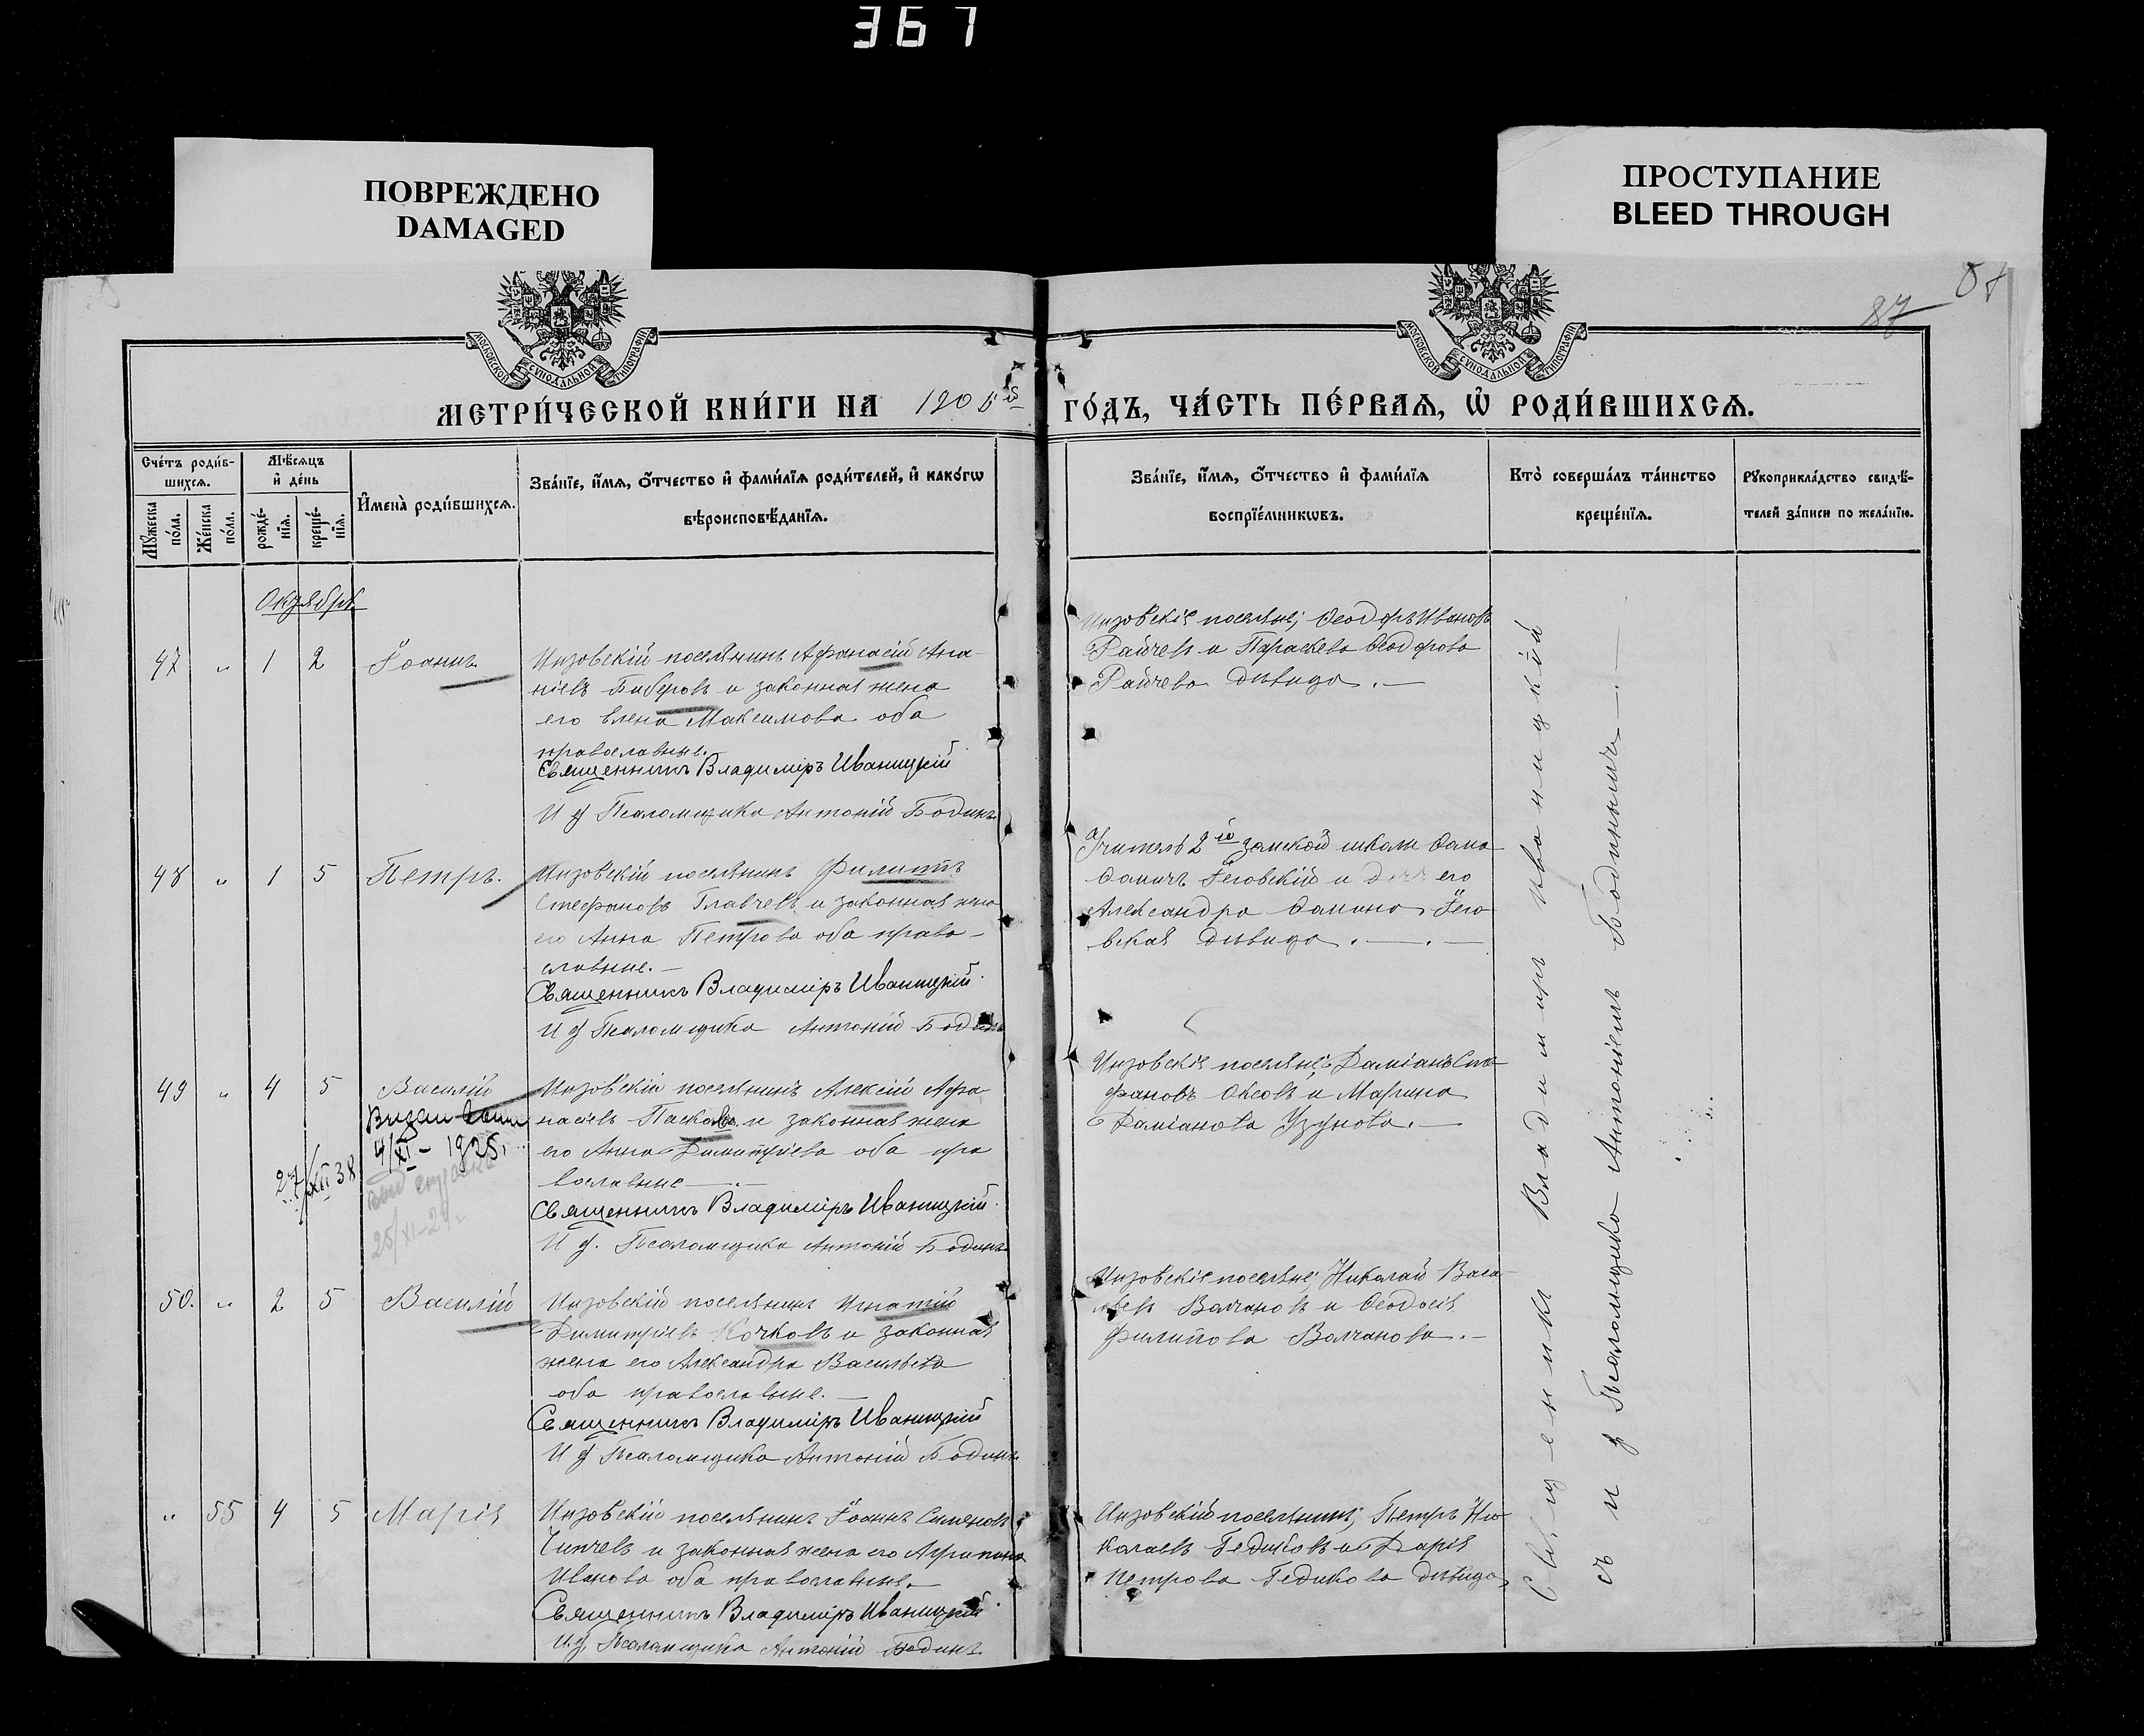 367
ПОВРЕЖДЕНО
DAMAGED
ПРОСТУПАНИЕ
BLEED THROUGH
87
МОСКОВСКОЙ СѴНОДАЛЬНОЙ ТИПОГРАФІИ
МОСКОВСКОЙ СѴНОДАЛЬНОЙ ТИПОГРАФІИ
МЕТРИ́ЧЕСКОЙ КНИ́ГИ НА 190 ГО́ДЪ, ЧА́СТЬ ПЕ́РВАѦ, Ѡ҆ РОДИ́ВШИХСѦ.
Сче́тъ роди́в-
шихсѧ.
Мꙋ́жеска по́ла.
Же́нска по́ла.
Мѣ́сѧцъ и҆ де́нь
рожде́-
нїѧ.
креще́-
нїѧ.
И҆мена̀ роди́вшихсѧ.
Зва́нїе, и҆́мѧ, ѻ҆́тчество и҆ фами́лїѧ роди́телей, и҆ како́гѡ
вѣроисповѣ́данїѧ.
Зва́нїе, и҆́мѧ, ѻ҆́тчество и҆ фами́лїѧ
воспрїе́мникѡвъ.
Кто̀ соверша́лъ та́инство
креще́нїѧ.
Рꙋкоприкла́дство свидѣ́-
телей за́писи по жела́нїю.
Октябрь
47 " 1 2 Іоаннъ
Инзовскій поселянинъ Афанасій Ана-
ніевъ Биберовъ и законная жена
его Елена Максимова оба
православные.
Священникъ Владиміръ Иваницкій
И д Псаломщика Антоній Бодинъ
Инзовскіе поселяне; Ѳеодоръ Ивановъ
Райчевъ и Параскева Ѳеодорова
Райчева дѣвица.
48 " 1 5 Петръ.
Инзовскій поселянинъ Филиппъ
Стефановъ Главчевъ и законная жена
его Анна Петрова оба право-
славные.
Священникъ Владиміръ Иваницкій
И д Псаломщика Антоній Бодинъ
Учитель 2й земской школы
и его
Александра
вская дѣвица.
49 " 4 5 Василій
4/XI - 1925.
27/XII 38
25/XI-29
Инзовскій поселянинъ Алексій Афа-
насіевъ и законная жена
его Анна Димитріева оба пра
вославные
Священникъ Владиміръ Иваницкій
И д. Псаломщика Антоній Бодинъ
Инзовскіе поселяне; Даміанъ Сте-
фановъ и Марина
Даміанова Узунова.
50. " 2 5 Василій
Инзовскій поселянинъ Игнатій
Димитріевъ Кочковъ и законная
жена его Александра Васильева
оба православные.
Священникъ Владиміръ Иваницкій
И д Псаломщика Антоній Бодинъ
Инзовскіе поселяне; Николай Васи-
льевъ Волчановъ и Ѳеодосія
Филипова Волчанова.
" 55 4 5 Марія
Инзовскій поселянинъ Іоаннъ Симеоновъ
и законная жена его Агрипина
Иванова оба православные.
Священникъ Владиміръ Иваницкій
И.д. Псаломщика Антоній Бодинъ
Инзовскій поселянинъ; Петръ Ни-
колаевъ Гединовъ и Дарія
Петрова дѣвица
Священникъ Владиміръ Иваницкій
съ и д Псаломщика Антоніемъ Бодинымъ